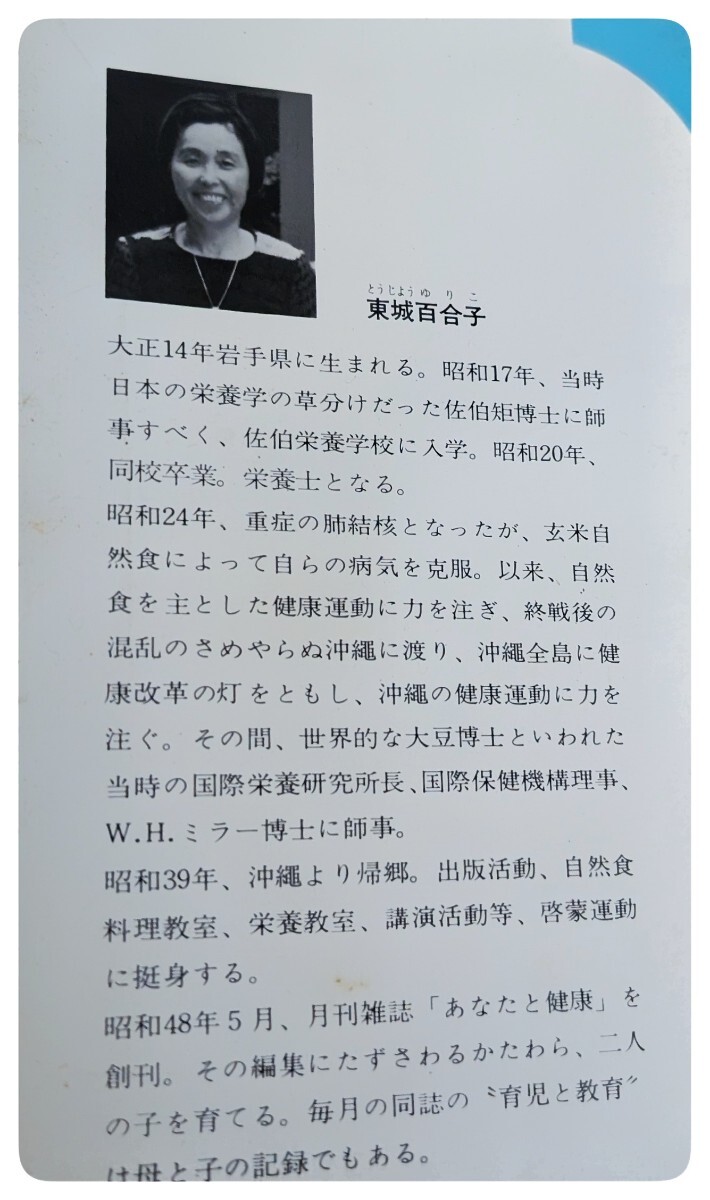 とうじようゆりこ
東城百合子
大正14年岩手県に生まれる。昭和17年、当時
日本の栄養学の草分けだった佐伯矩博士に師
事すべく、佐伯栄養学校に入学。昭和20年、
同校卒業。栄養士となる。
昭和24年、重症の肺結核となったが、玄米自
然食によって自らの病気を克服。以来、自然
食を主とした健康運動に力を注ぎ、終戦後の
混乱のさめやらぬ沖縄に渡り、沖縄全島に健
康改革の灯をともし、沖縄の健康運動に力を
注ぐ。その間、世界的な大豆博士といわれた
当時の国際栄養研究所長、国際保健機構理事、
W.H.ミラー博士に師事。
昭和39年、沖縄より帰郷。出版活動、自然食
料理教室、栄養教室、講演活動等、啓蒙運動
に挺身する。
昭和48年5月、月刊雑誌「あなたと健康」を
創刊。その編集にたずさわるかたわら、二人
の子を育てる。毎月の同誌の〝育児と教育〞
は母と子の記録でもある。